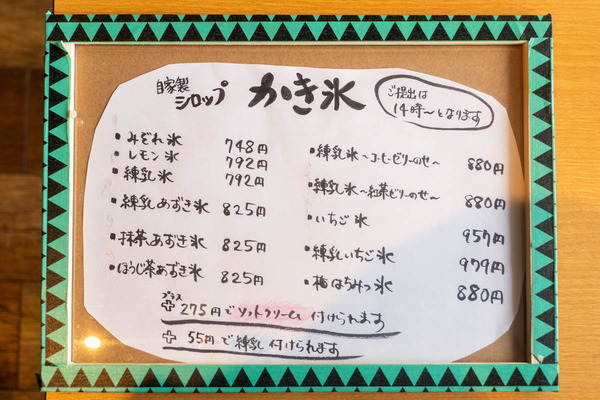 自家製
シロップ
かき氷
ご提出は
14時〜となります
・みぞれ氷 748円
・レモン氷 792円
・練乳氷 792円
・練乳あずき氷 825円
・抹茶あずき氷 825円
・ほうじ茶あずき氷 825円
・練乳氷〜コーヒーゼリーのせ〜 880円
・練乳氷〜紅茶ゼリーのせ〜 880円
・いちご氷 957円
・練乳いちご氷 979円
・梅はちみつ氷 880円
プラス
+ 275円でソフトクリーム付けられます
+ 55円で練乳付けられます